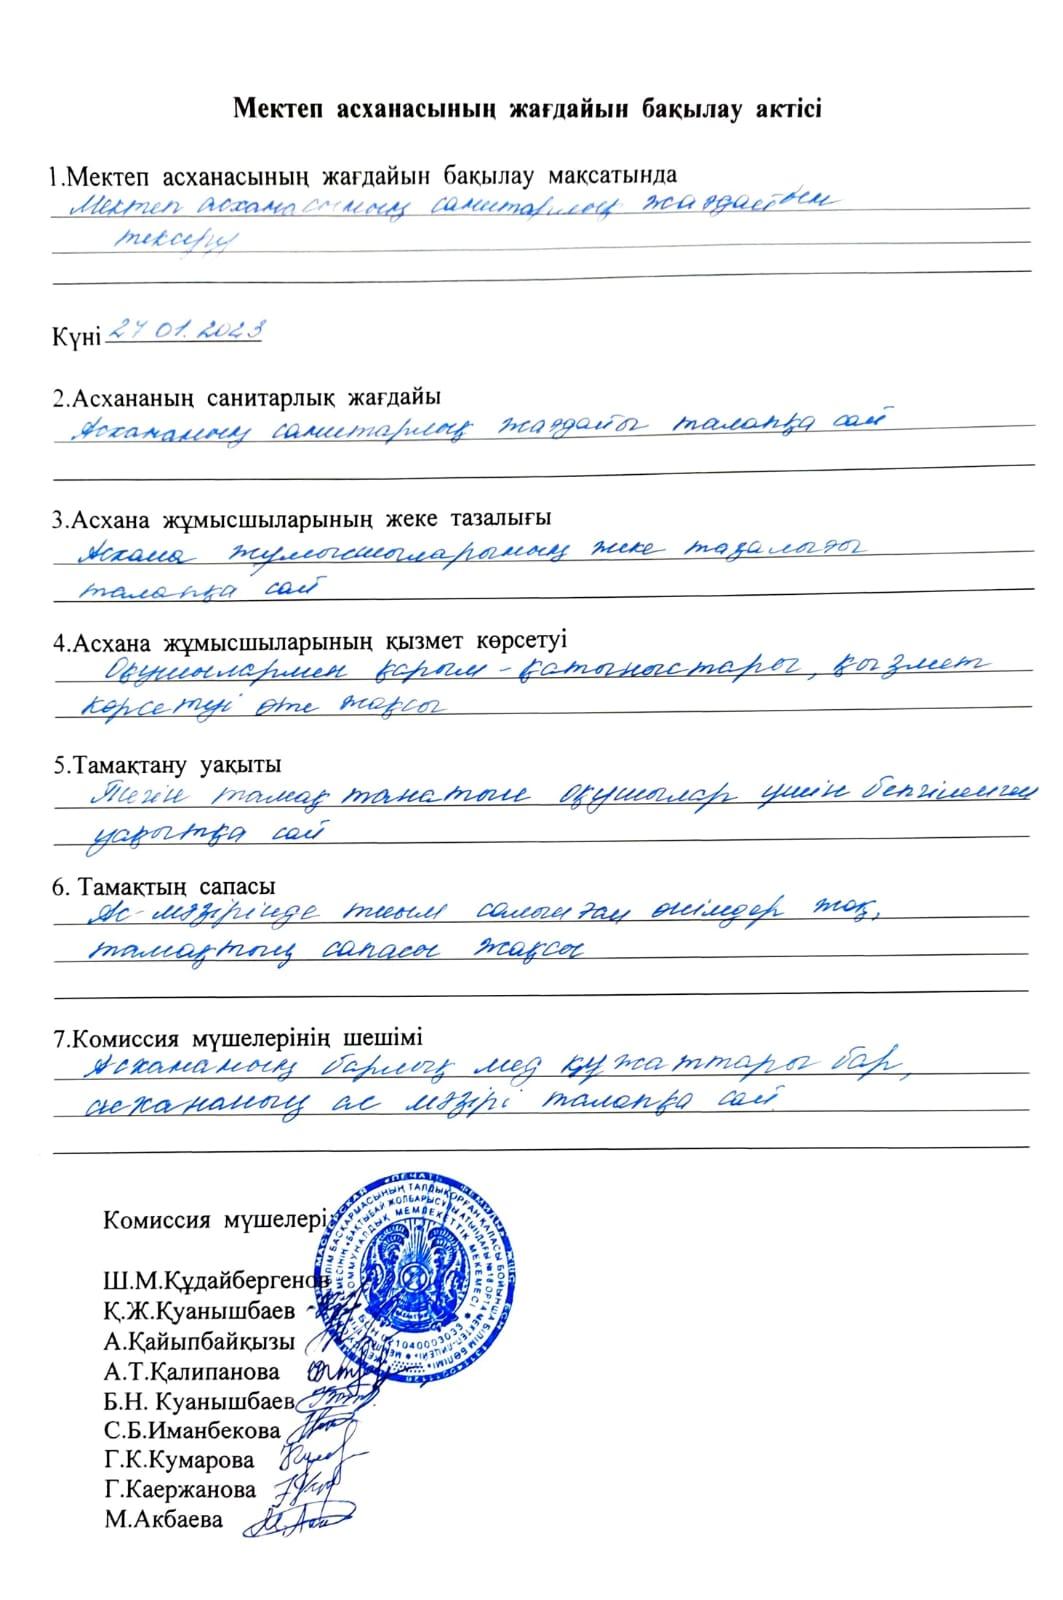 Мектеп асханасының жағдайын бақылау актісі
1.Мектеп асханасының жағдайын бақылау мақсатында
Мектеп асханасының санитарлық жағдайын
тексеру
Күні 27 01. 2023
2.Асхананың санитарлық жағдайы
Асхананың санитарлық жағдайы талапқа сай
3.Асхана жұмысшыларының жеке тазалығы
Асхана жұмысшыларының жеке тазалығы
талапқа сай
4.Асхана жұмысшыларының қызмет көрсетуі
Оқушылармен қарым-қатынастары, қызмет
көрсетуі өте жақсы
5.Тамақтану уақыты
Тегін тамақтанатын оқушылар үшін белгіленген
уақытқа сай
6. Тамақтың сапасы
Ас-мәзірінде тиым салынған өнімдер жоқ,
тамақтың сапасы жақсы
7.Комиссия мүшелерінің шешімі
Асхананың барлық мед құжаттары бар,
асхананың ас мәзірі талапқа сай
Комиссия мүшелері
Ш.М.Құдайбергенов
Қ.Ж.Қуанышбаев
А.Қайыпбайқызы
А.Т.Қалипанова
Б.Н. Куанышбаев
С.Б.Иманбекова
Г.К.Кумарова
Г.Каержанова
М.Акбаева